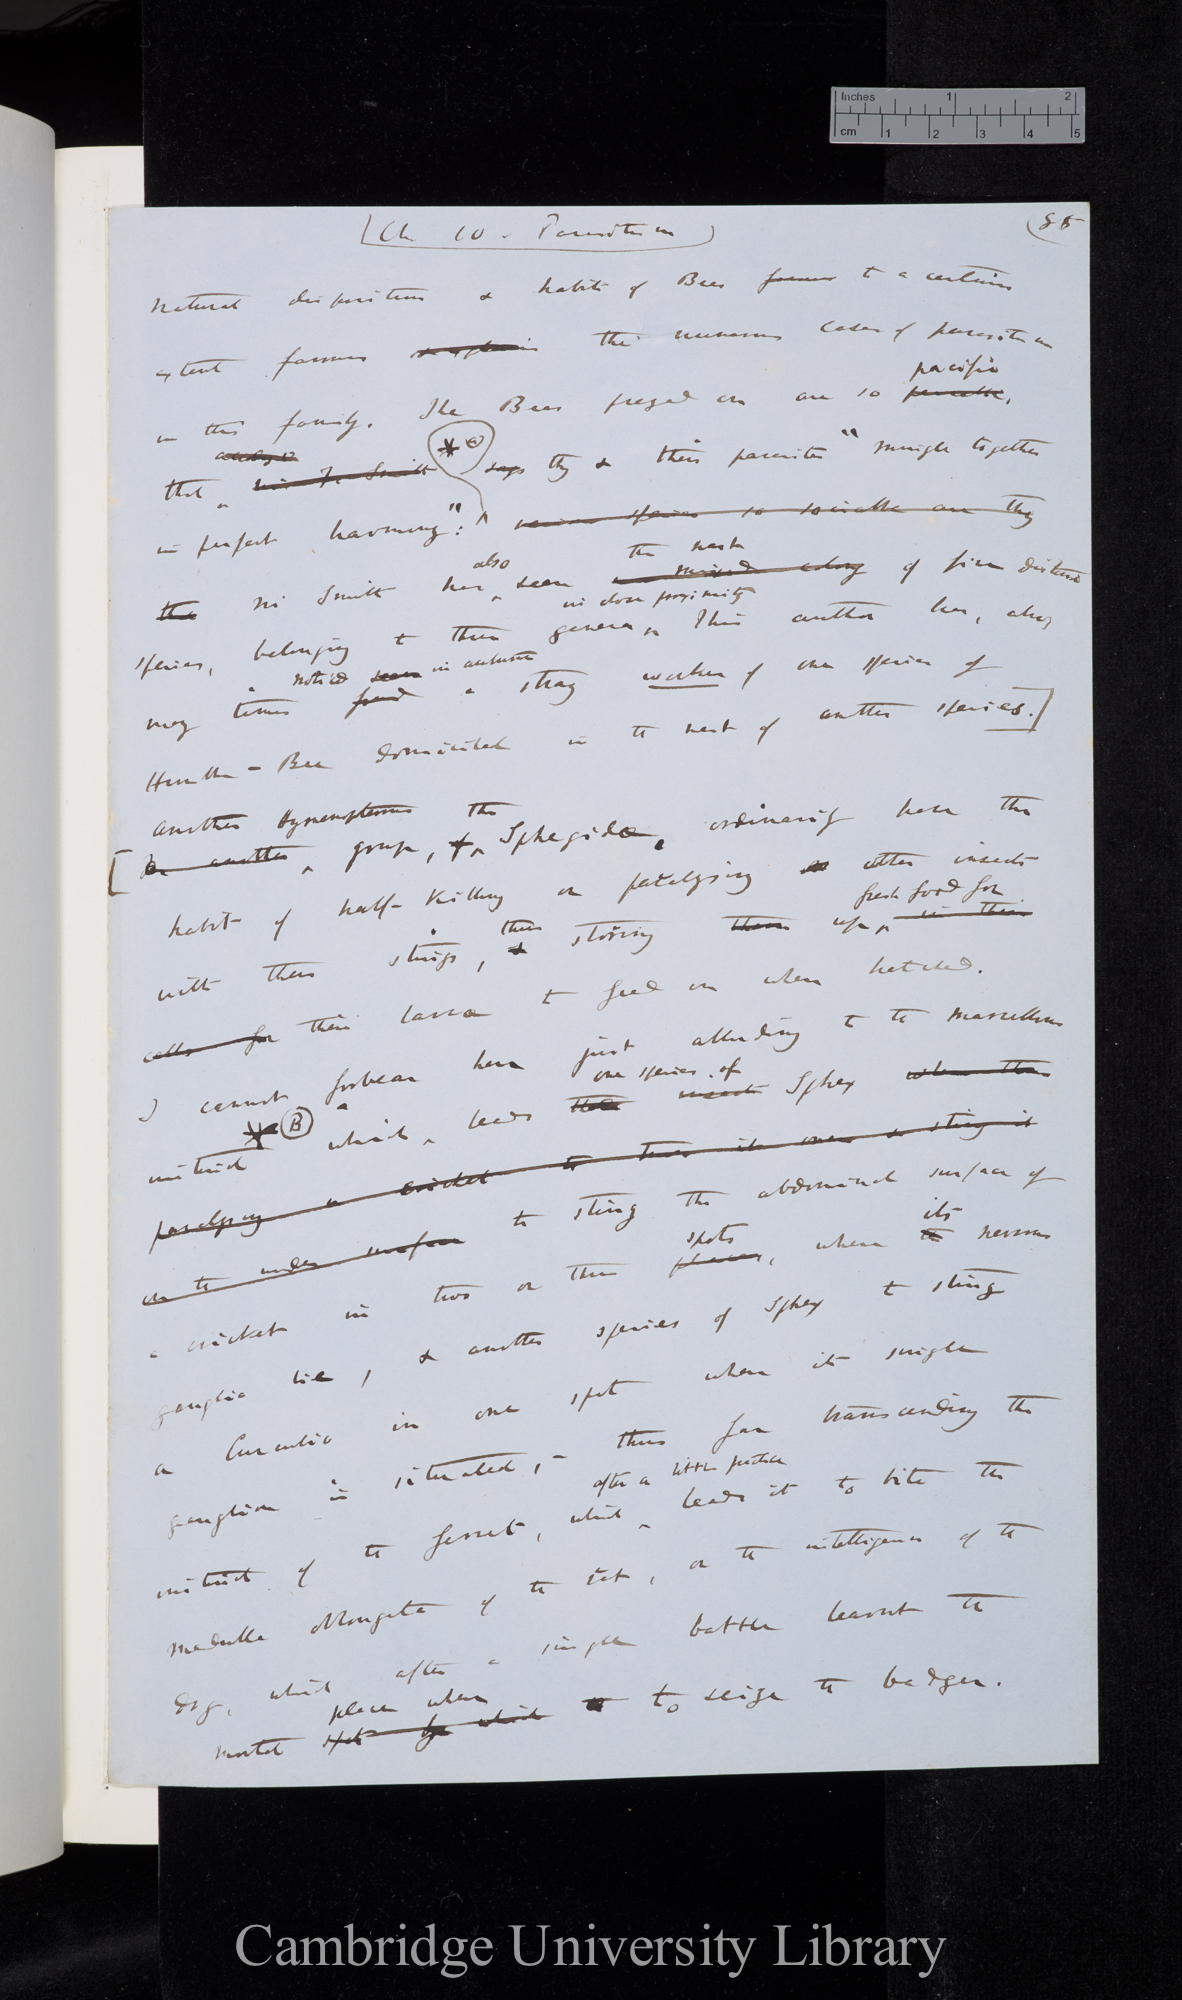 Inches 1 2
cm 1 2 3 4 5
(Ch. 10. Parasitism) (85
natural disposition & habits of Bees favours to a certain
extent favours to explain the numerous cases of parasitism
pacific
in this family. The Bees preyed on are so peaceable,
that Mr. F. Smith * (a) says they & their parasites "mingle together
in perfect harmony": various species so sociable are they
also the nests
that Mr Smith has seen a mixed colony of five distinct
in close proximity
species, belonging to three genera. This author has, also,
noticed seen in autumn
many times found a stray worker of one species of
Humble-Bee domiciled in the nest of another species.]
another Hymenopterous the
[In another group, Sphegidae, ordinarily have the
habit of half-killing or paralysing other insects
then fresh food for
with their stings, & storing them up in their
cells for their larvæ to feed on when hatched.
I cannot forbear here just alluding to the marvellous
one species of
instinct * (B) which leads insects Sphex when
paralysing a cricket to turn it over & sting it
on the under surface to sting the abdominal surface of
spots its
a cricket in two or three places, where the nervous
ganglia lie, & another species of Sphex to sting
a Curculio in one spot where its single
ganglion is situated,- thus far transcending the
after a little practice
instinct of the ferret, which leads it to bite the
medulla oblongata of the rat, or the intelligence of the
dog, which after a single battle learnt the
place where
mortal spot by which to seize the badger.
Cambridge University Library